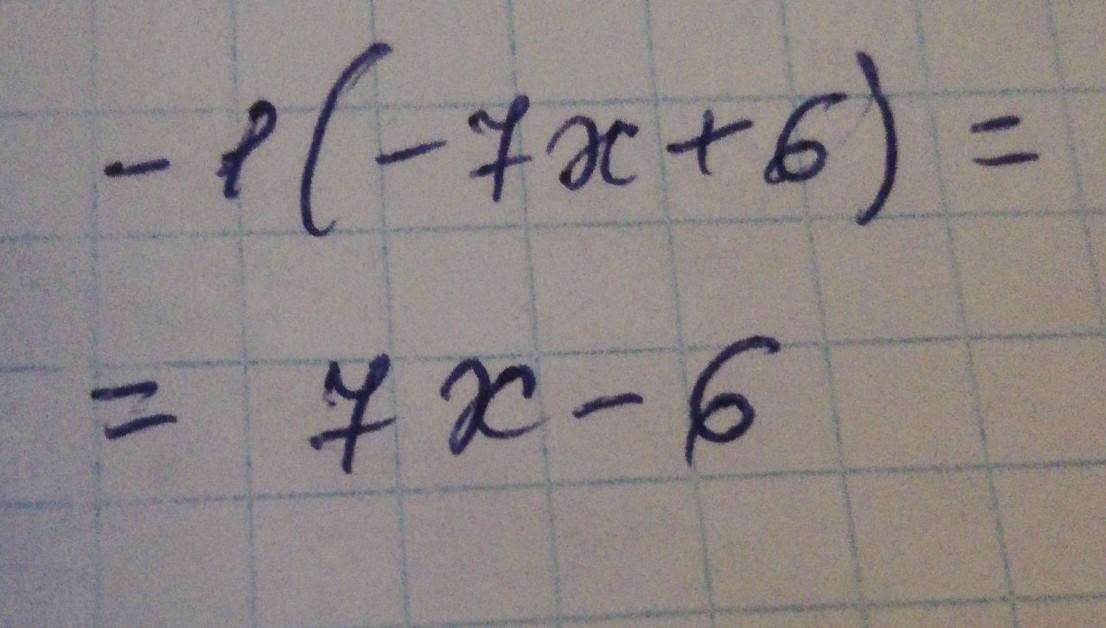 -1(-7x+6)=
= 7x-6